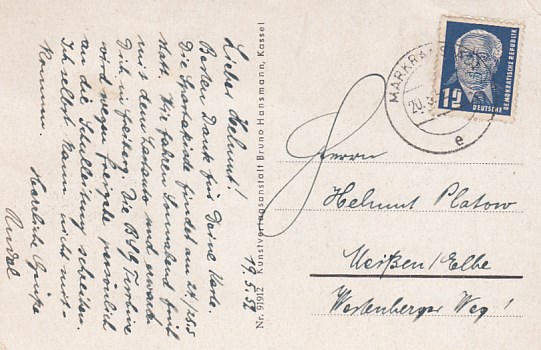 19.5.52
Lieber Helmut!
Besten Dank für Deine Karte.
Die Spartakiade findet am 24./25.5
statt. Wir fahren Sonnabend früh
mit dem Lastauto und erwarten
Dich in Freiberg. Die BSG Turbine
wird wegen Freigabe persönlich
an die Schulleitung schreiben.
Ich selbst kann nicht mit-
kommen.
Herzliche Grüße
Nr. 91912 Kunstverlagsanstalt Bruno Hansmann, Kassel
MARKRAN
20.
e
12
DEUTSCHE
DEMOKRATISCHE REPUBLIK
Herrn
Helmut Platow
Meißen/Elbe
Wettenberger Weg!